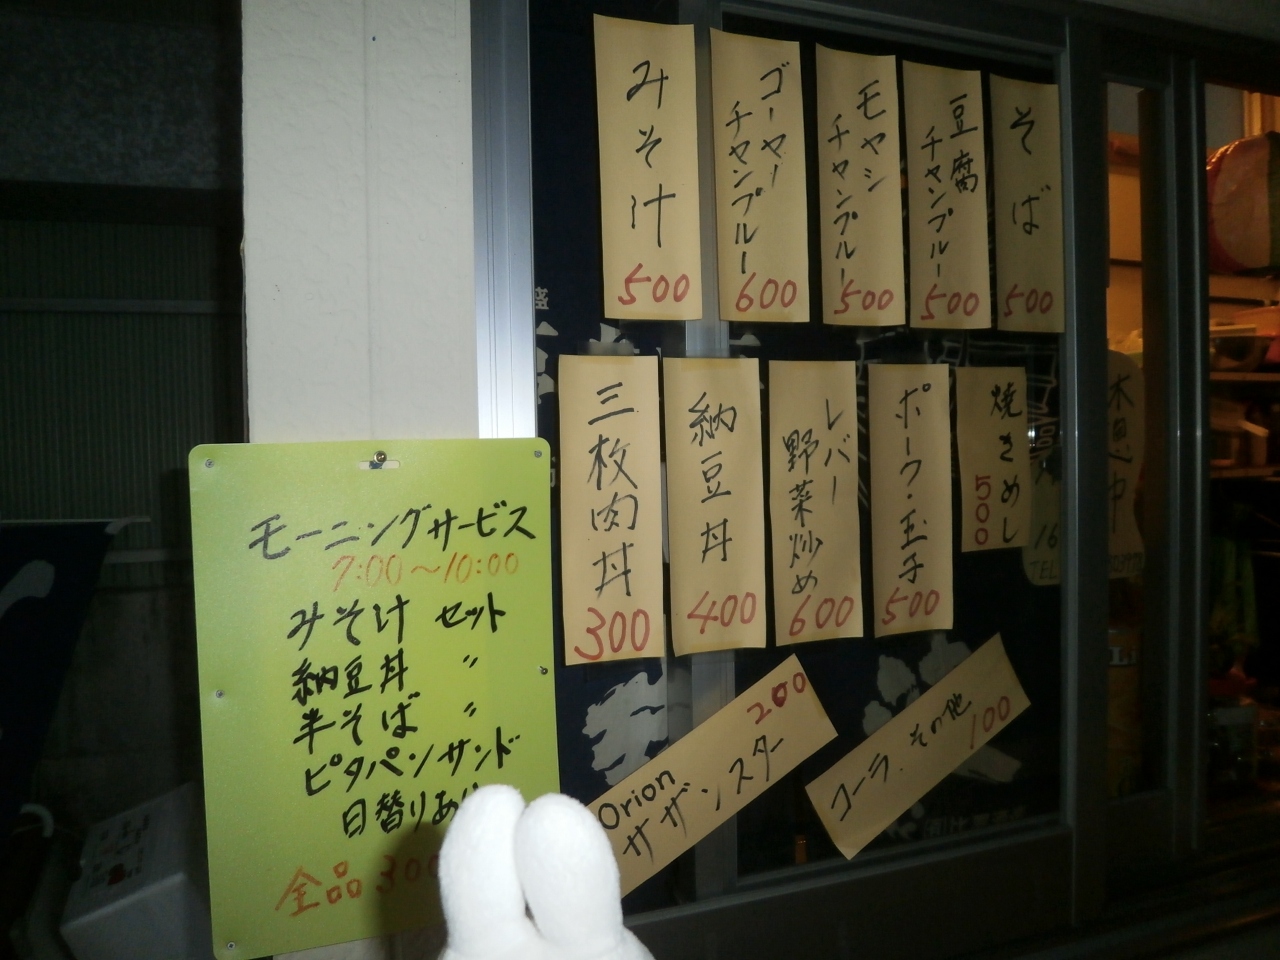 そば
500
豆腐
チャンプルー
500
モヤシ
チャンプルー
500
ゴーヤー
チャンプルー
600
みそ汁
500
焼きめし
500
ポーク・玉子
500
レバー
野菜炒め
600
納豆丼
400
三枚肉丼
300
Orion
サザンスター
200
コーラ、その他
100
モーニングサービス
7:00～10:00
みそ汁 セット
納豆丼 〃
半そば 〃
ピタパンサンド
日替りあり
全品300
TEL